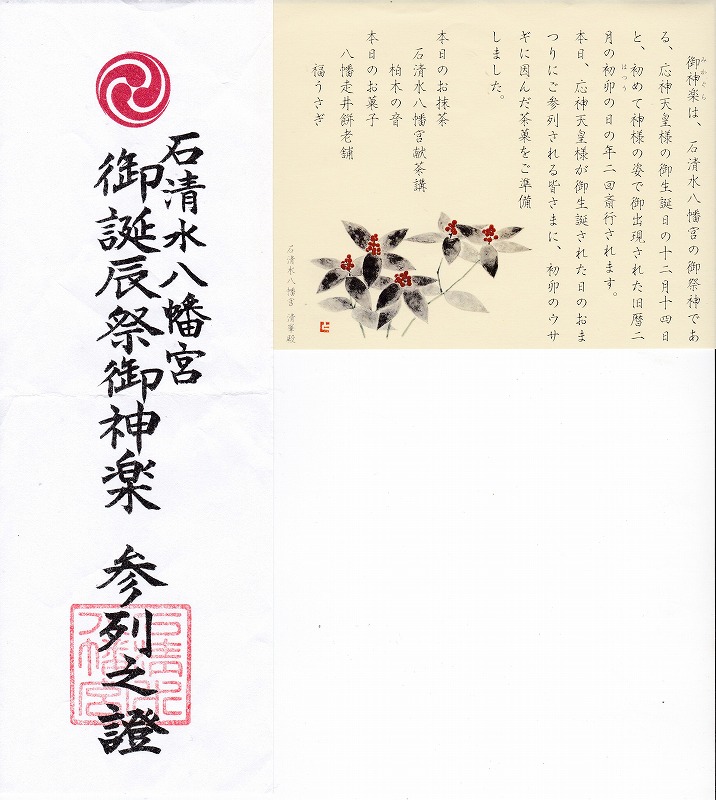 みかぐら
御神楽は、石清水八幡宮の御祭神であ
る、応神天皇様の御生誕日の十二月十四日
と、初めて神様の姿で御出現された旧暦二
はつう
月の初卯の日の年二回斎行されます。
本日、応神天皇様が御生誕された日のおま
つりにご参列される皆さまに、初卯のウサ
ギに因んだ茶菓をご準備
しました。
本日のお抹茶
石清水八幡宮献茶講
柏木の音
本日のお菓子
八幡走井餅老舗
福うさぎ
石清水八幡宮 清峯殿
石清水八幡宮
御誕辰祭御神楽 参列之證
石清水八幡宮